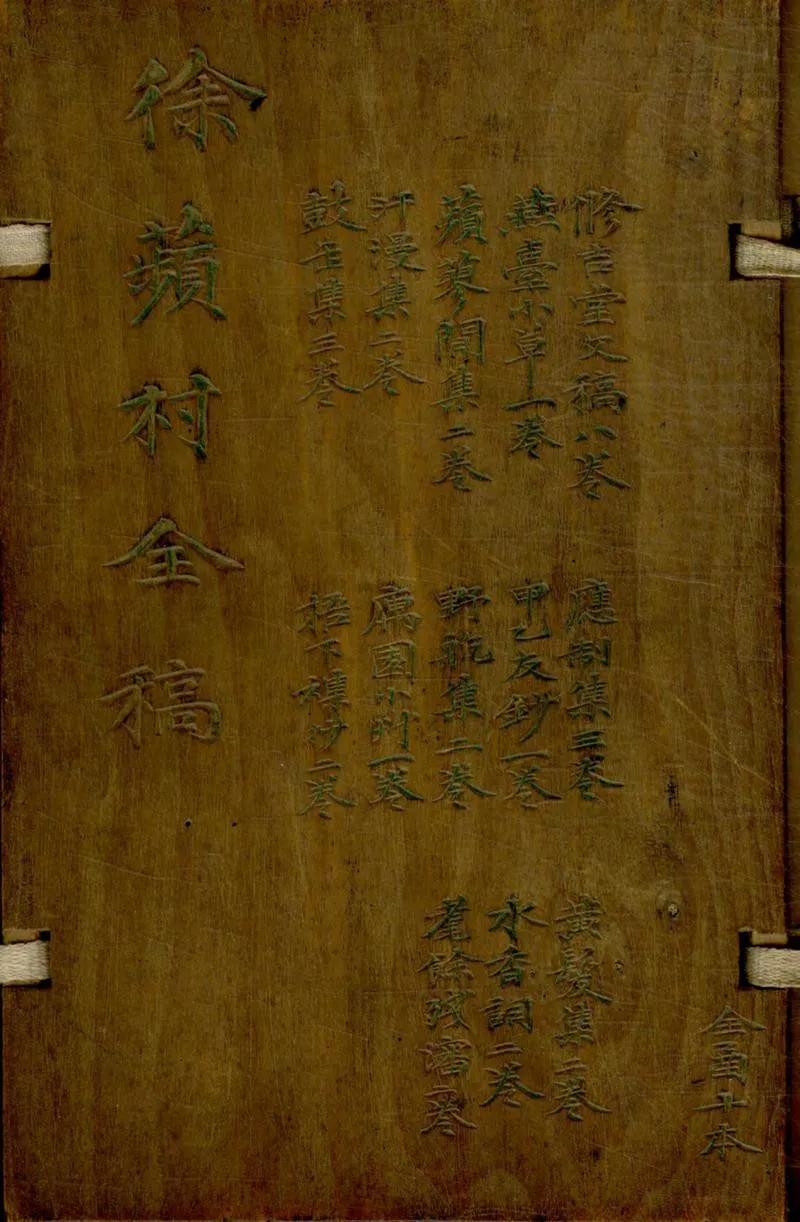 全函十本
修吉堂文稿八卷
燕臺小草一卷
蘋蓼閒集二卷
汗漫集二卷
鼓缶集三卷
應制集三卷
甲乙友鈔一卷
野航集二卷
寓園小艸一卷
梧下襍抄二卷
黃髮集二卷
水香詞二卷
耄餘殘瀋二卷
徐蘋村全稿